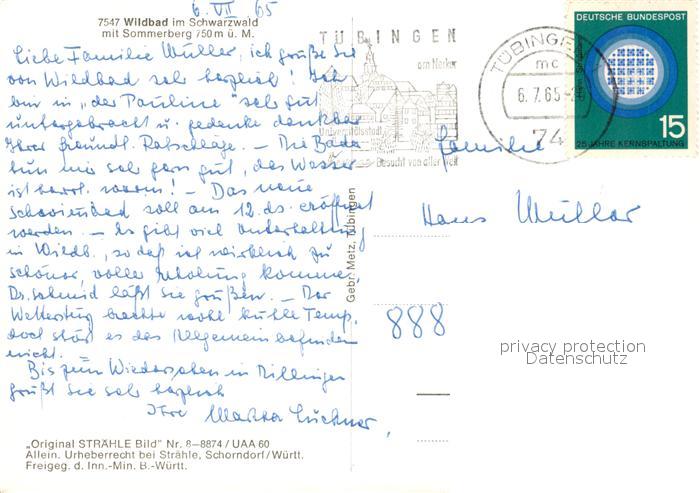 6. VII 65
7547 Wildbad im Schwarzwald
mit Sommerberg 750 m ü. M.
Liebe Familie Müller, ich grüße Sie
von Wildbad sehr herzlich! Ich
bin in „der Pauline" sehr gut
untergebracht u. gedenke dankbar
Ihrer freundl. Ratschläge. – Die Bäder
tun mir sehr gut, das Wasser
ist herrl. warm! – Das neue
soll am 12. ds. eröffnet
werden. – Es gibt viel Unterhaltung
in Wildb., so daß ich wirklich zu
schöner, voller Erholung komme.
Dr. Schmid läßt Sie grüßen. – Der
Wettersturz brachte wohl kühle Temp.
doch stört es das Allgemeinbefinden
nicht.
Bis zum Wiedersehen in Villingen
grüßt Sie sehr herzlich
Ihre Martha
„Original STRÄHLE Bild" Nr. 8–8874 / UAA 60
Allein. Urheberrecht bei Strähle, Schorndorf/Württ.
Freigeg. d. Inn.-Min. B.-Württ.
Gebr. Metz, Tübingen
TÜBINGEN
am Neckar
Universitätsstadt
Besucht von aller Welt
TÜBINGEN
mc
6.7.65
74
DEUTSCHE BUNDESPOST
15
25 JAHRE KERNSPALTUNG
Familie
Hans Müller
888
privacy protection
Datenschutz